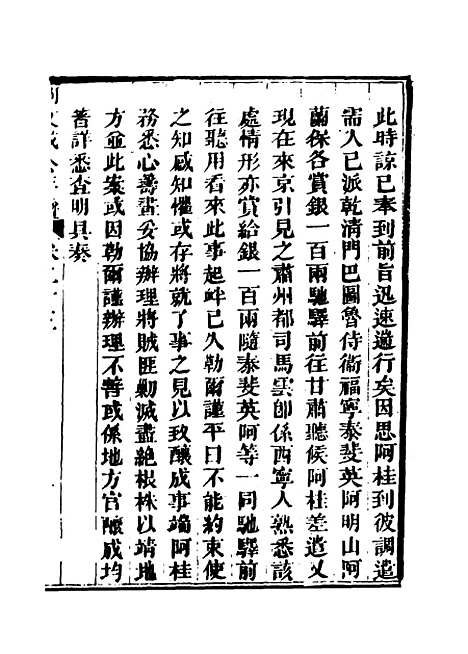 此時諒已奉到前旨迅速遄行矣因思阿桂到彼調遣
需人已派乾清門巴圖魯侍衞福寧泰斐英阿明山阿
蘭保各賞銀一百兩馳驛前往甘肅聽候阿桂差遣又
現在來京引見之肅州都司馬雲卽係西寧人熟悉該
處情形亦賞給銀一百兩隨泰斐英阿等一同馳驛前
往聽用看來此事起衅已久勒爾謹平日不能約束使
之知感知懼或存將就了事之見以致釀成事端阿桂
務悉心籌畫妥協辦理將賊匪勦滅盡絕根株以靖地
方並此案或因勒爾謹辦理不善或係地方官釀成均
著詳悉查明具奏